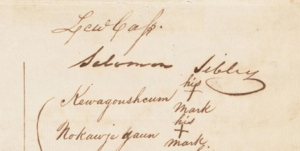 Lew Cass.
Solomon Sibley
Kewagoushcum his + mark
Nokawjegaun his + mark